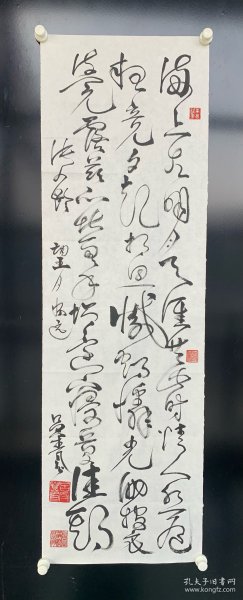 海上生明月天涯共此时情人怨遥
夜竟夕起相思灭烛怜光满披衣
觉露滋不堪盈手赠还寝梦佳期
张九龄 望月怀远
孔夫子旧书网